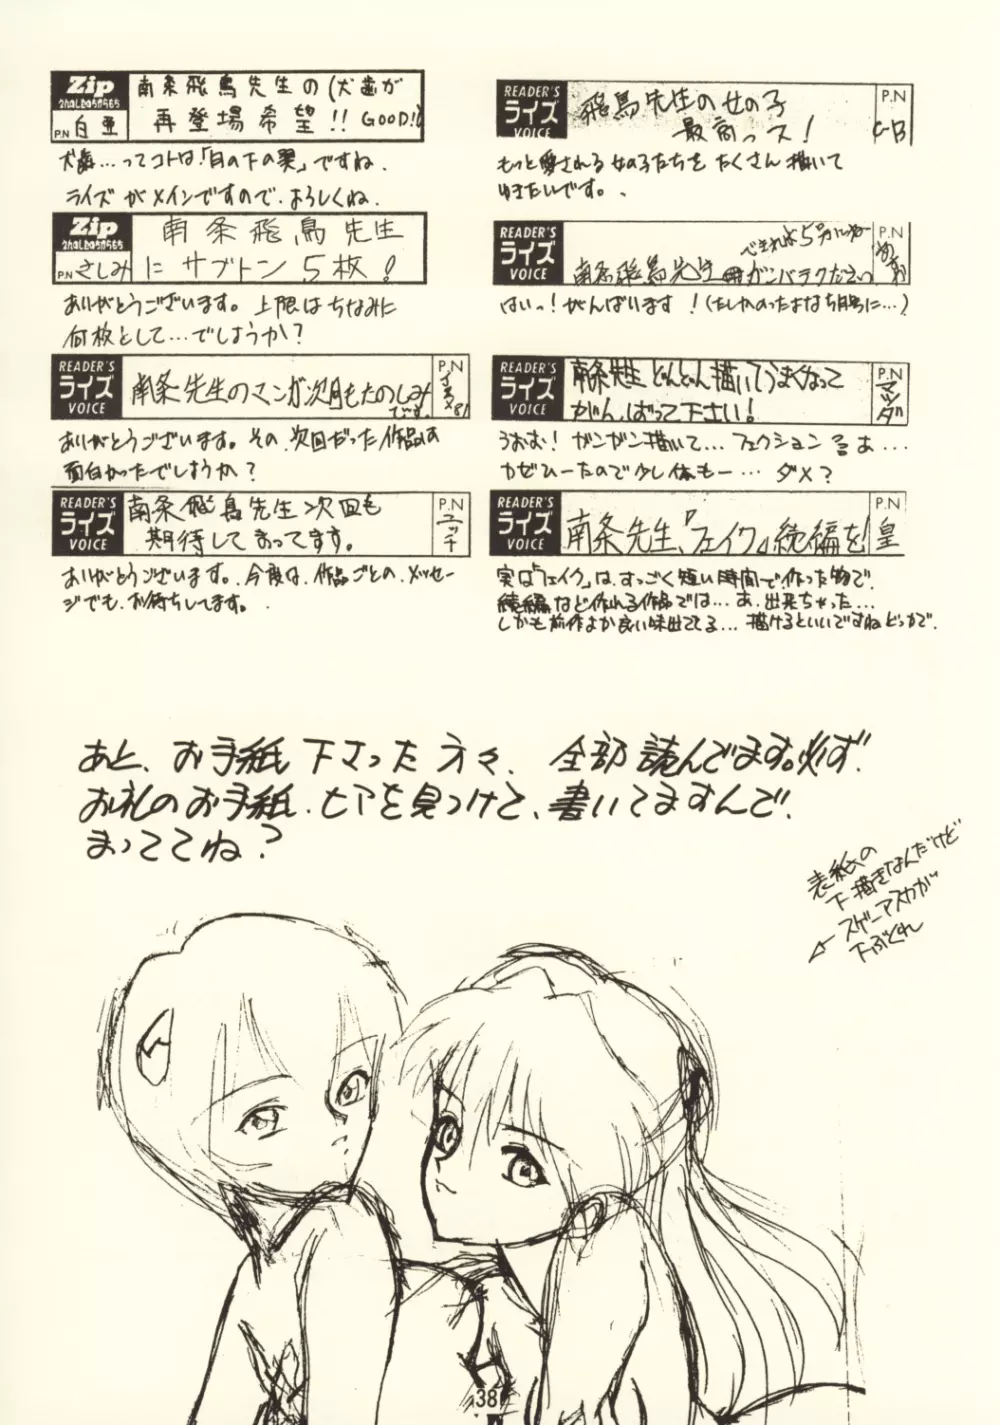 Zip
P.N 白亜
南条飛鳥先生の(犬歯が
再登場希望!! GOOD!!
犬歯…ってコトは「目の下の翼」ですね.
ライズがメインですので、よろしくね.
Zip
P.N さしみ
南条飛鳥先生
にザブトン5枚!
ありがとうございます。上限はちなみに
何枚として…でしょうか?
READER'S
ライズ
VOICE
南条先生のマンガ次回もたのしみ
です
P.N
ありがとうございます。その、次回だった作品は
面白かったでしょうか?
READER'S
ライズ
VOICE
南条飛鳥先生次回も
期待してまってます。
P.N
ユッチ
ありがとうございます。今度は、作品ごとの、メッセー
ジでも、お待ちしてます。
READER'S
ライズ
VOICE
飛鳥先生の女の子
最高っス!
P.N
C-B
もっと愛される女の子たちをたくさん描いて
ゆきたいです。
READER'S
ライズ
VOICE
南条飛鳥先生
ガンバッテください
P.N
はいっ!がんばります!
READER'S
ライズ
VOICE
南条先生どんどん描いてうまくなって
がんばって下さい!
P.N
マツダ
うおお!ガンガン描いて…
かぜひーたので少し休もー…ダメ?
READER'S
ライズ
VOICE
南条先生、『フェイク』続編を!
P.N
皇
実は「フェイク」は、すっごく短い時間で作った物で、
続編など作れる作品では…あ、出来ちゃった…
しかも前作より良い味出てる…描けるといいですねどっかで.
あと、お手紙下さった方々、全部読んでます。必ず、
お礼のお手紙、ヒマを見つけて、書いてますんで、
まっててね?
表紙の
下描きなんだけど
スゲーアスカが
下ぶくれ
38